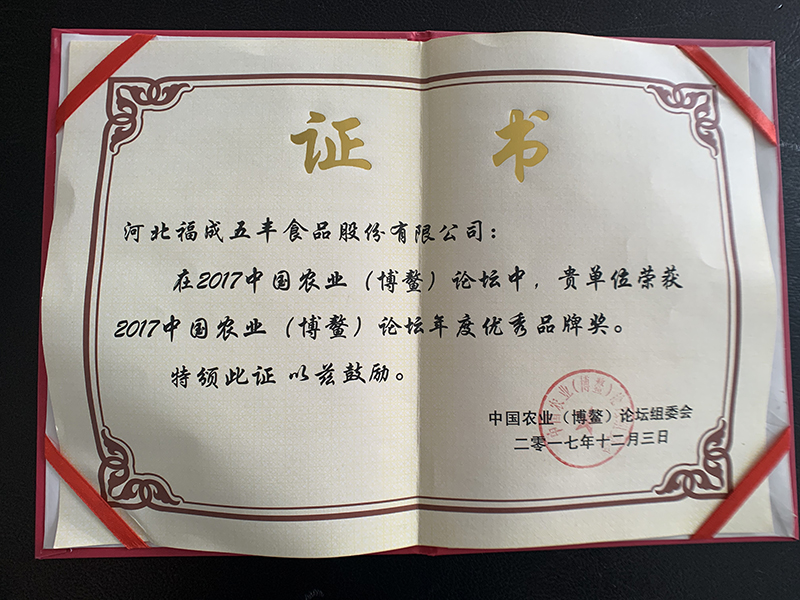 证 书
河北福成五丰食品股份有限公司：
在2017中国农业（博鳌）论坛中，贵单位荣获
2017中国农业（博鳌）论坛年度优秀品牌奖。
特颁此证 以兹鼓励。
中国农业（博鳌）论坛组委会
二零一七年十二月三日